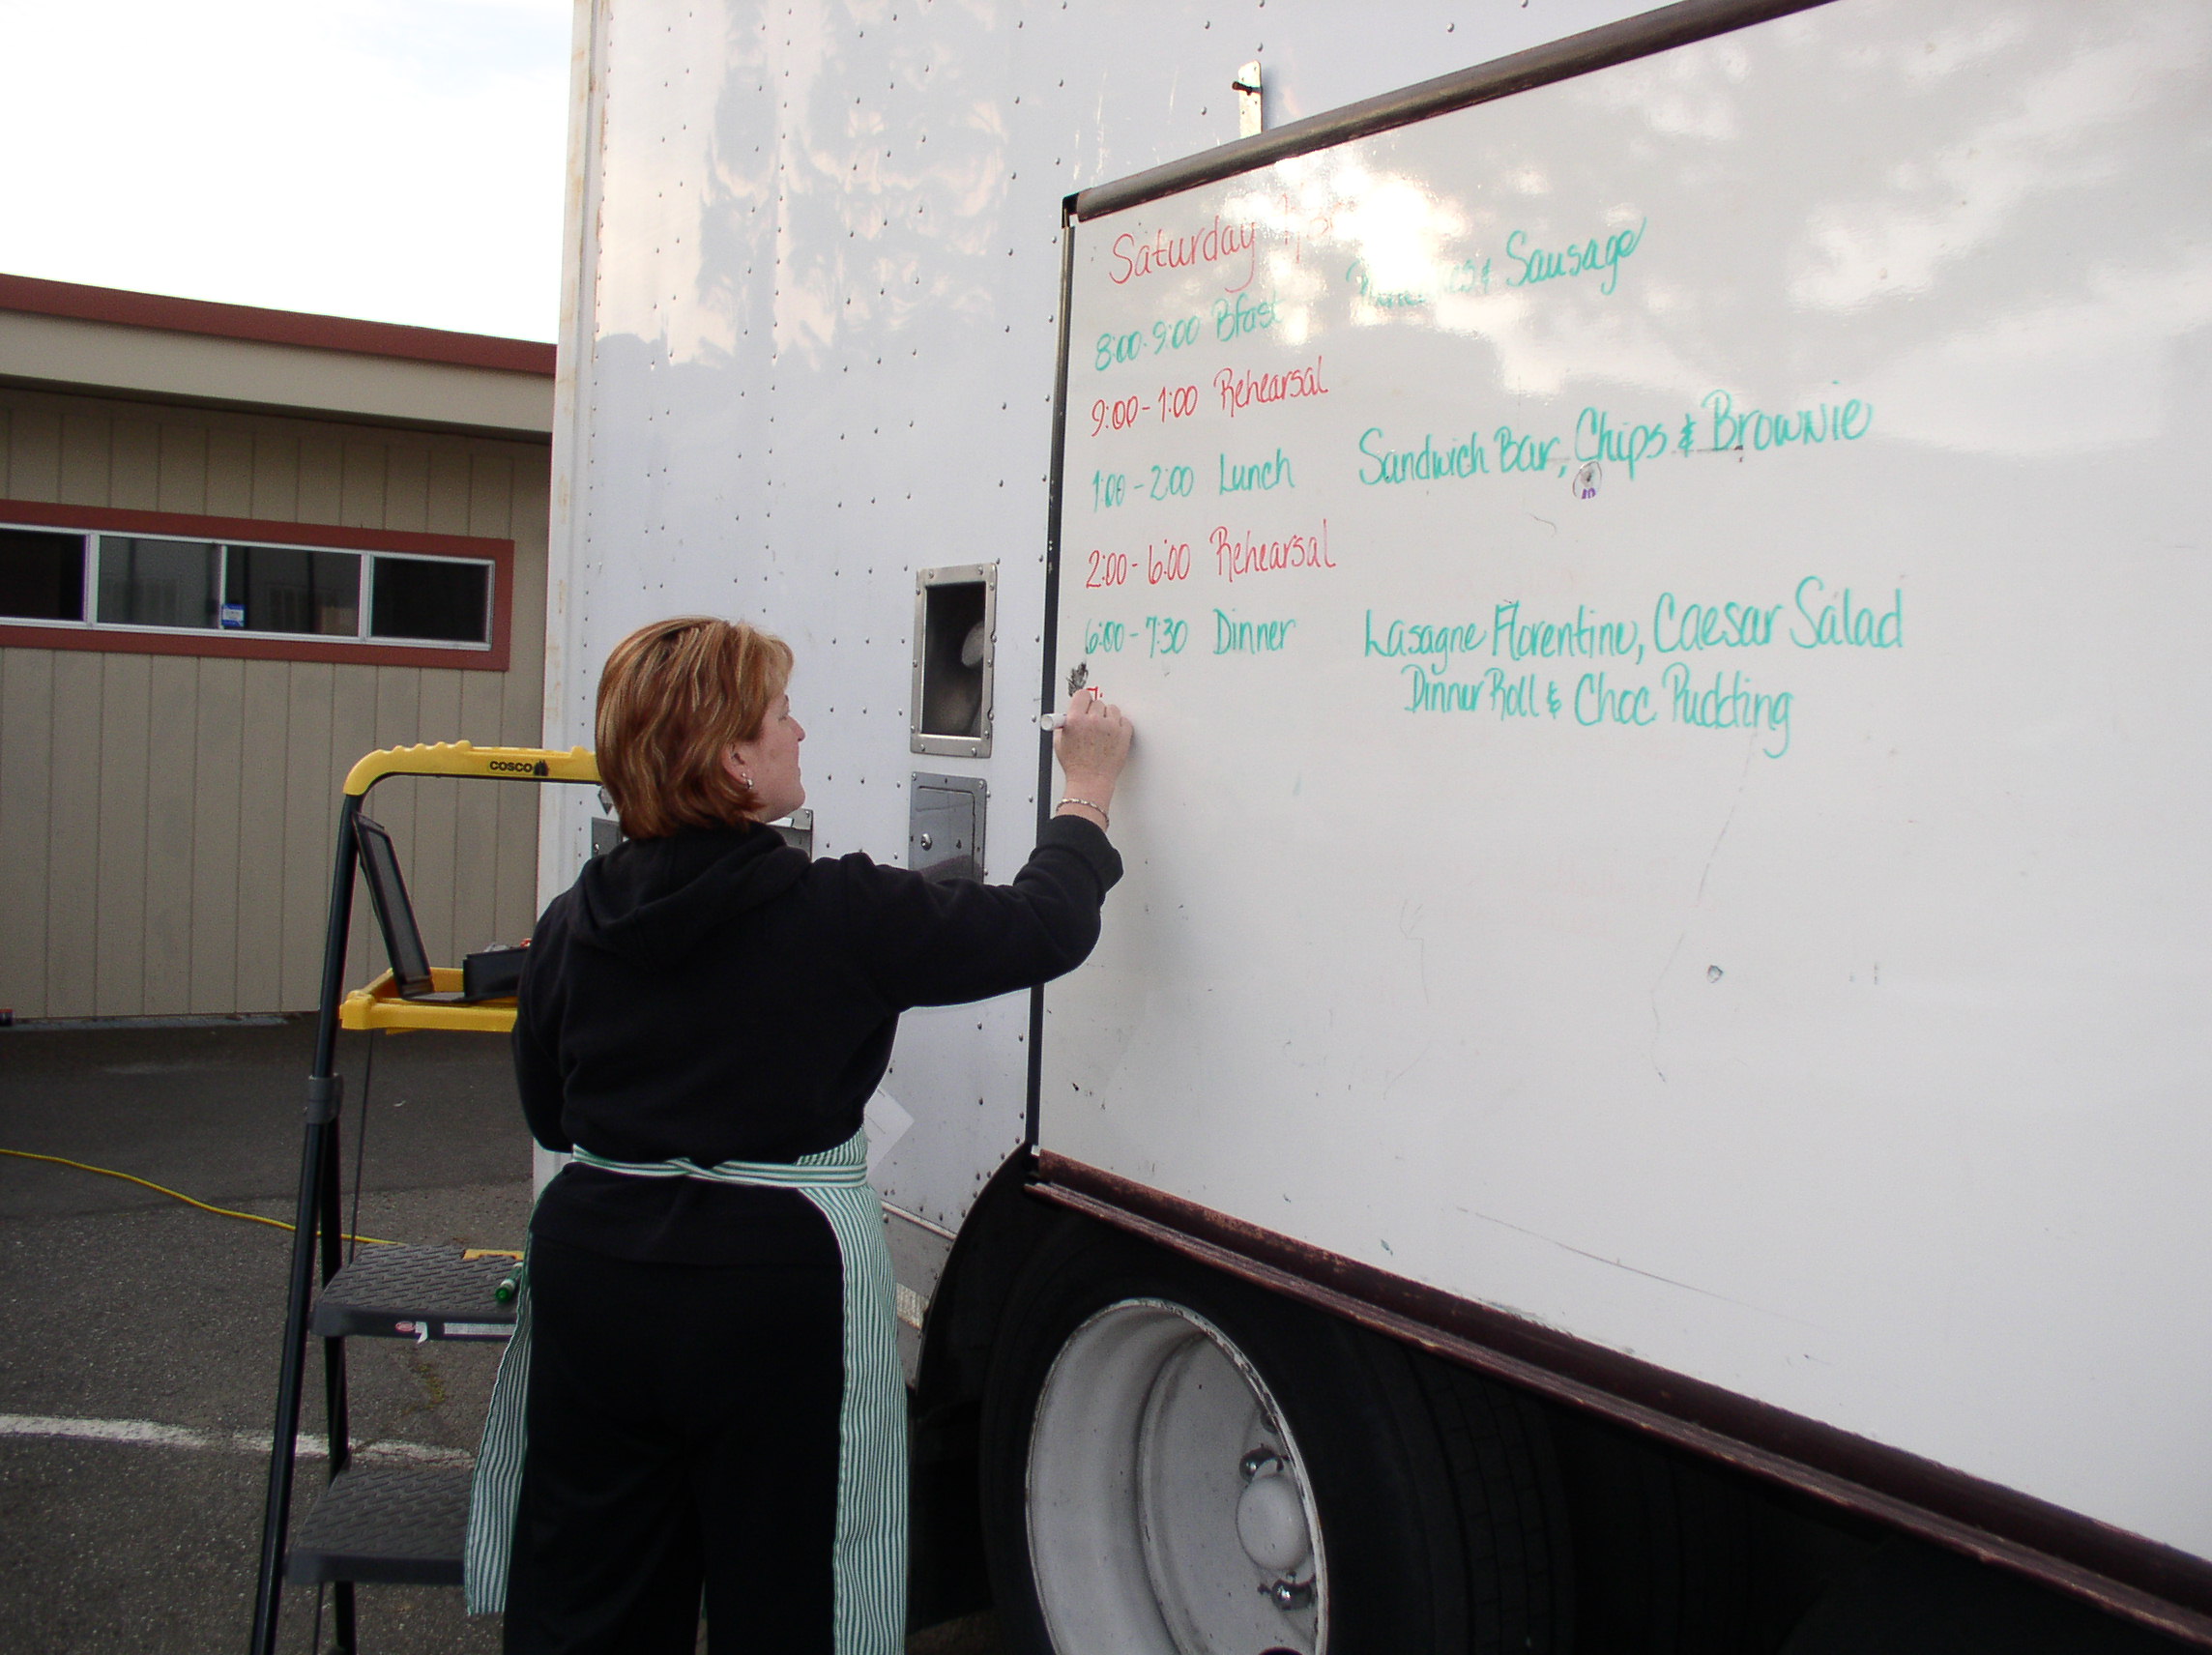 Saturday
8:00-9:00 Bfast & Sausage
9:00-1:00 Rehearsal
1:00-2:00 Lunch Sandwich Bar, Chips & Brownie
2:00-6:00 Rehearsal
6:00-7:30 Dinner Lasagne Florentine, Caesar Salad
Dinner Roll & Choc Pudding
7:
COSCO